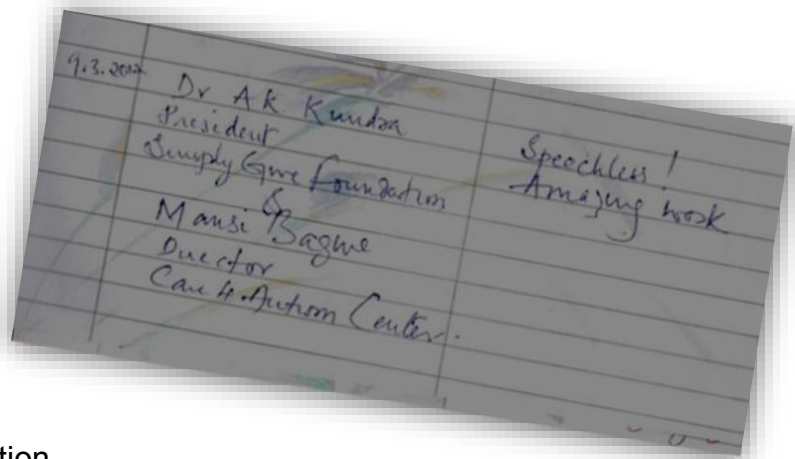 9.3.2017 Dr AK Kundra
President
Simply Give Foundation
&
Mansi Bagwe
Director
Care 4 Autism Center.
Speechless!
Amazing work
tion